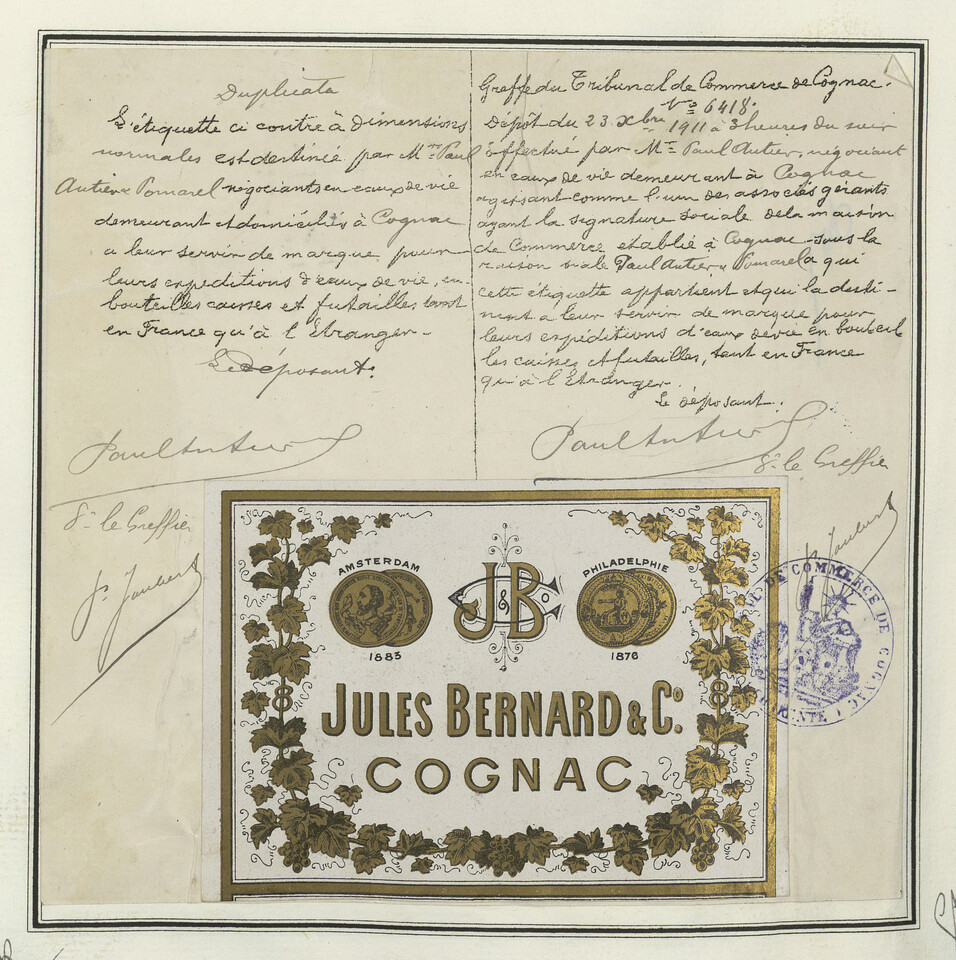 Duplicata
L'étiquette ci contre à dimensions
normales est destinée par Mrs Paul
Autier & Pomarel négociants en eaux de vie
demeurant et domiciliés à Cognac
a leur servir de marque pour
leurs expéditions d'eaux de vie, en
bouteilles caisses et futailles, tant
en France qu'à l'Etranger.
Le Déposant.
Paul Autier
Pr le Greffier
Greffe du Tribunal de Commerce de Cognac.
No 6418.
Dépôt du 23 Xbre 1911 à 3 heures du soir
effectué par Mr Paul Autier, négociant
en eaux de vie demeurant à Cognac
agissant comme l'un des associés gérants
ayant la signature sociale de la maison
de Commerce établie à Cognac sous la
raison sociale Paul Autier & Pomarel a qui
cette étiquette appartient et qui la desti-
nent a leur servir de marque pour
leurs expéditions d'eaux de vie en bouteil
les caisses et futailles, tant en France
qu'à l'Etranger.
Le déposant.
Paul Autier
Pr le Greffier
AMSTERDAM
1883
J B & Co
PHILADELPHIE
1876
JULES BERNARD & Co.
COGNAC
DE COMMERCE DE COGNAC